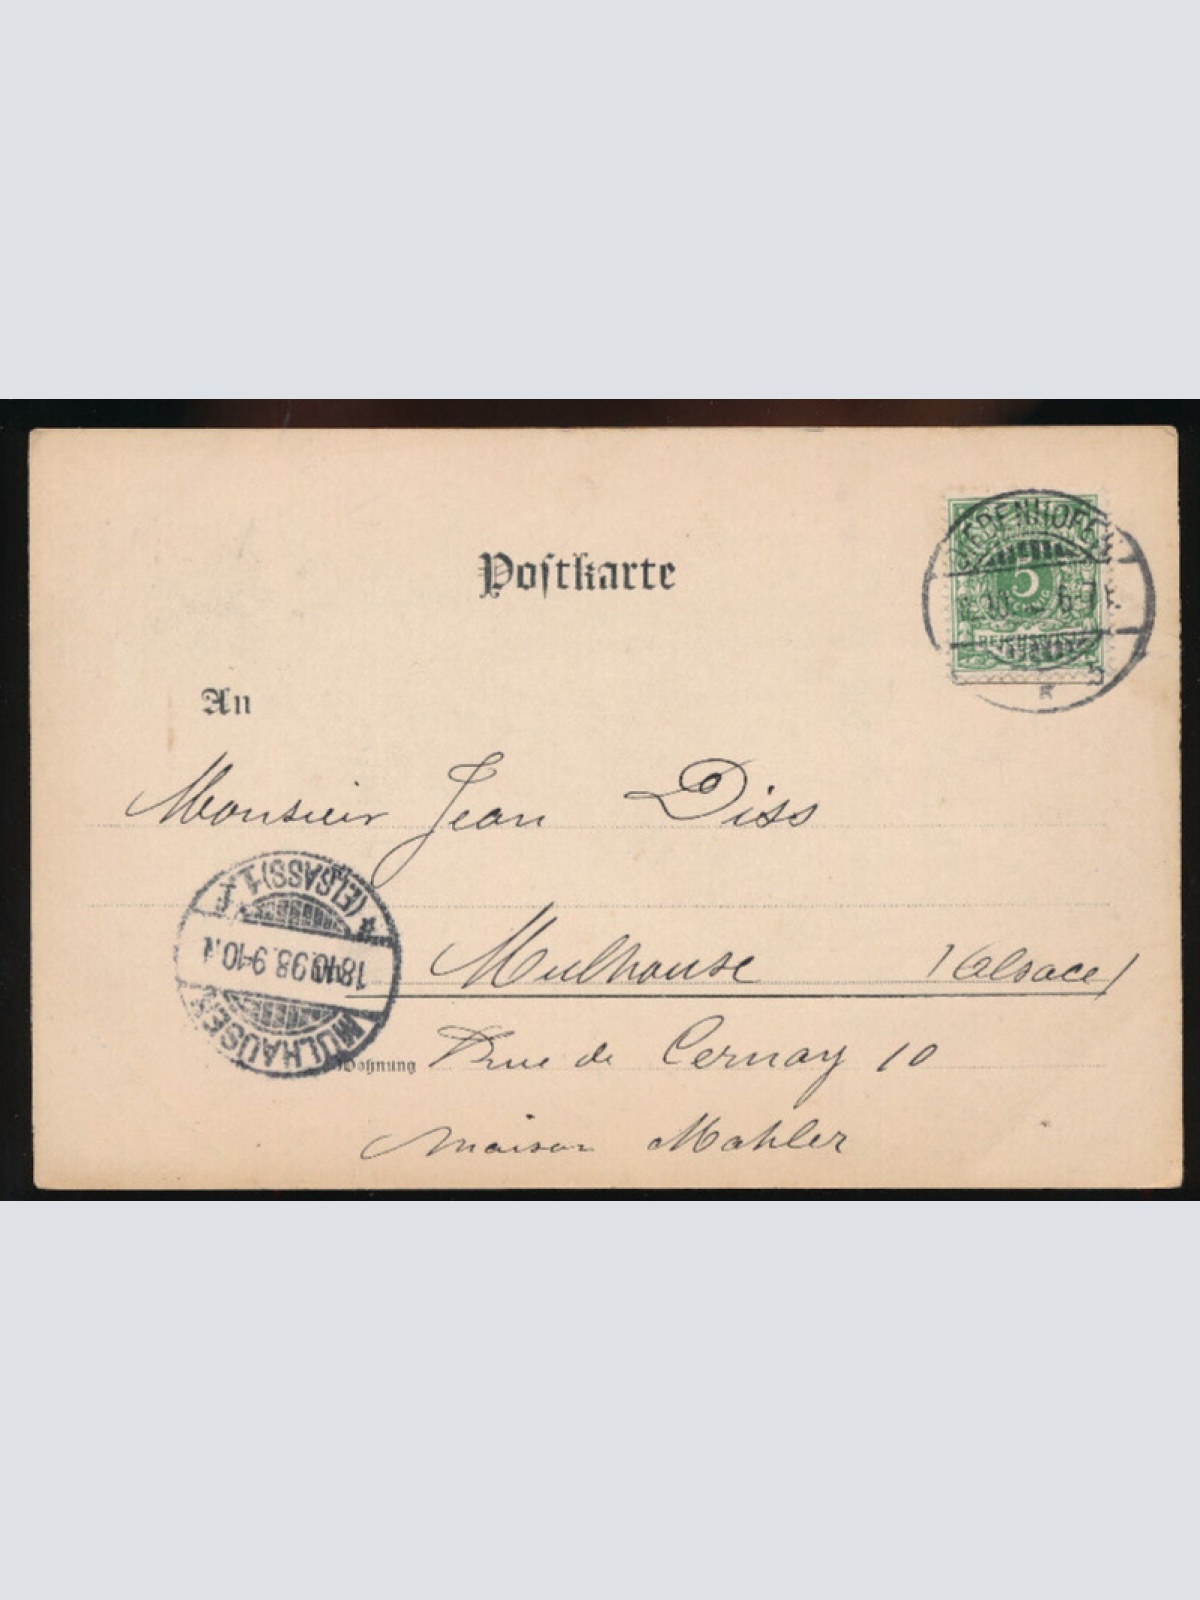 Postkarte
DIEDENHOFEN
5
6-7
REICHSPOST
b
An
Monsieur Jean Diss
(ELSASS) 1.
18.10.98. 9-10.N.
MÜLHAUSEN
Mulhouse (Alsace)
Wohnung Rue de Cernay 10
Maison Mahler